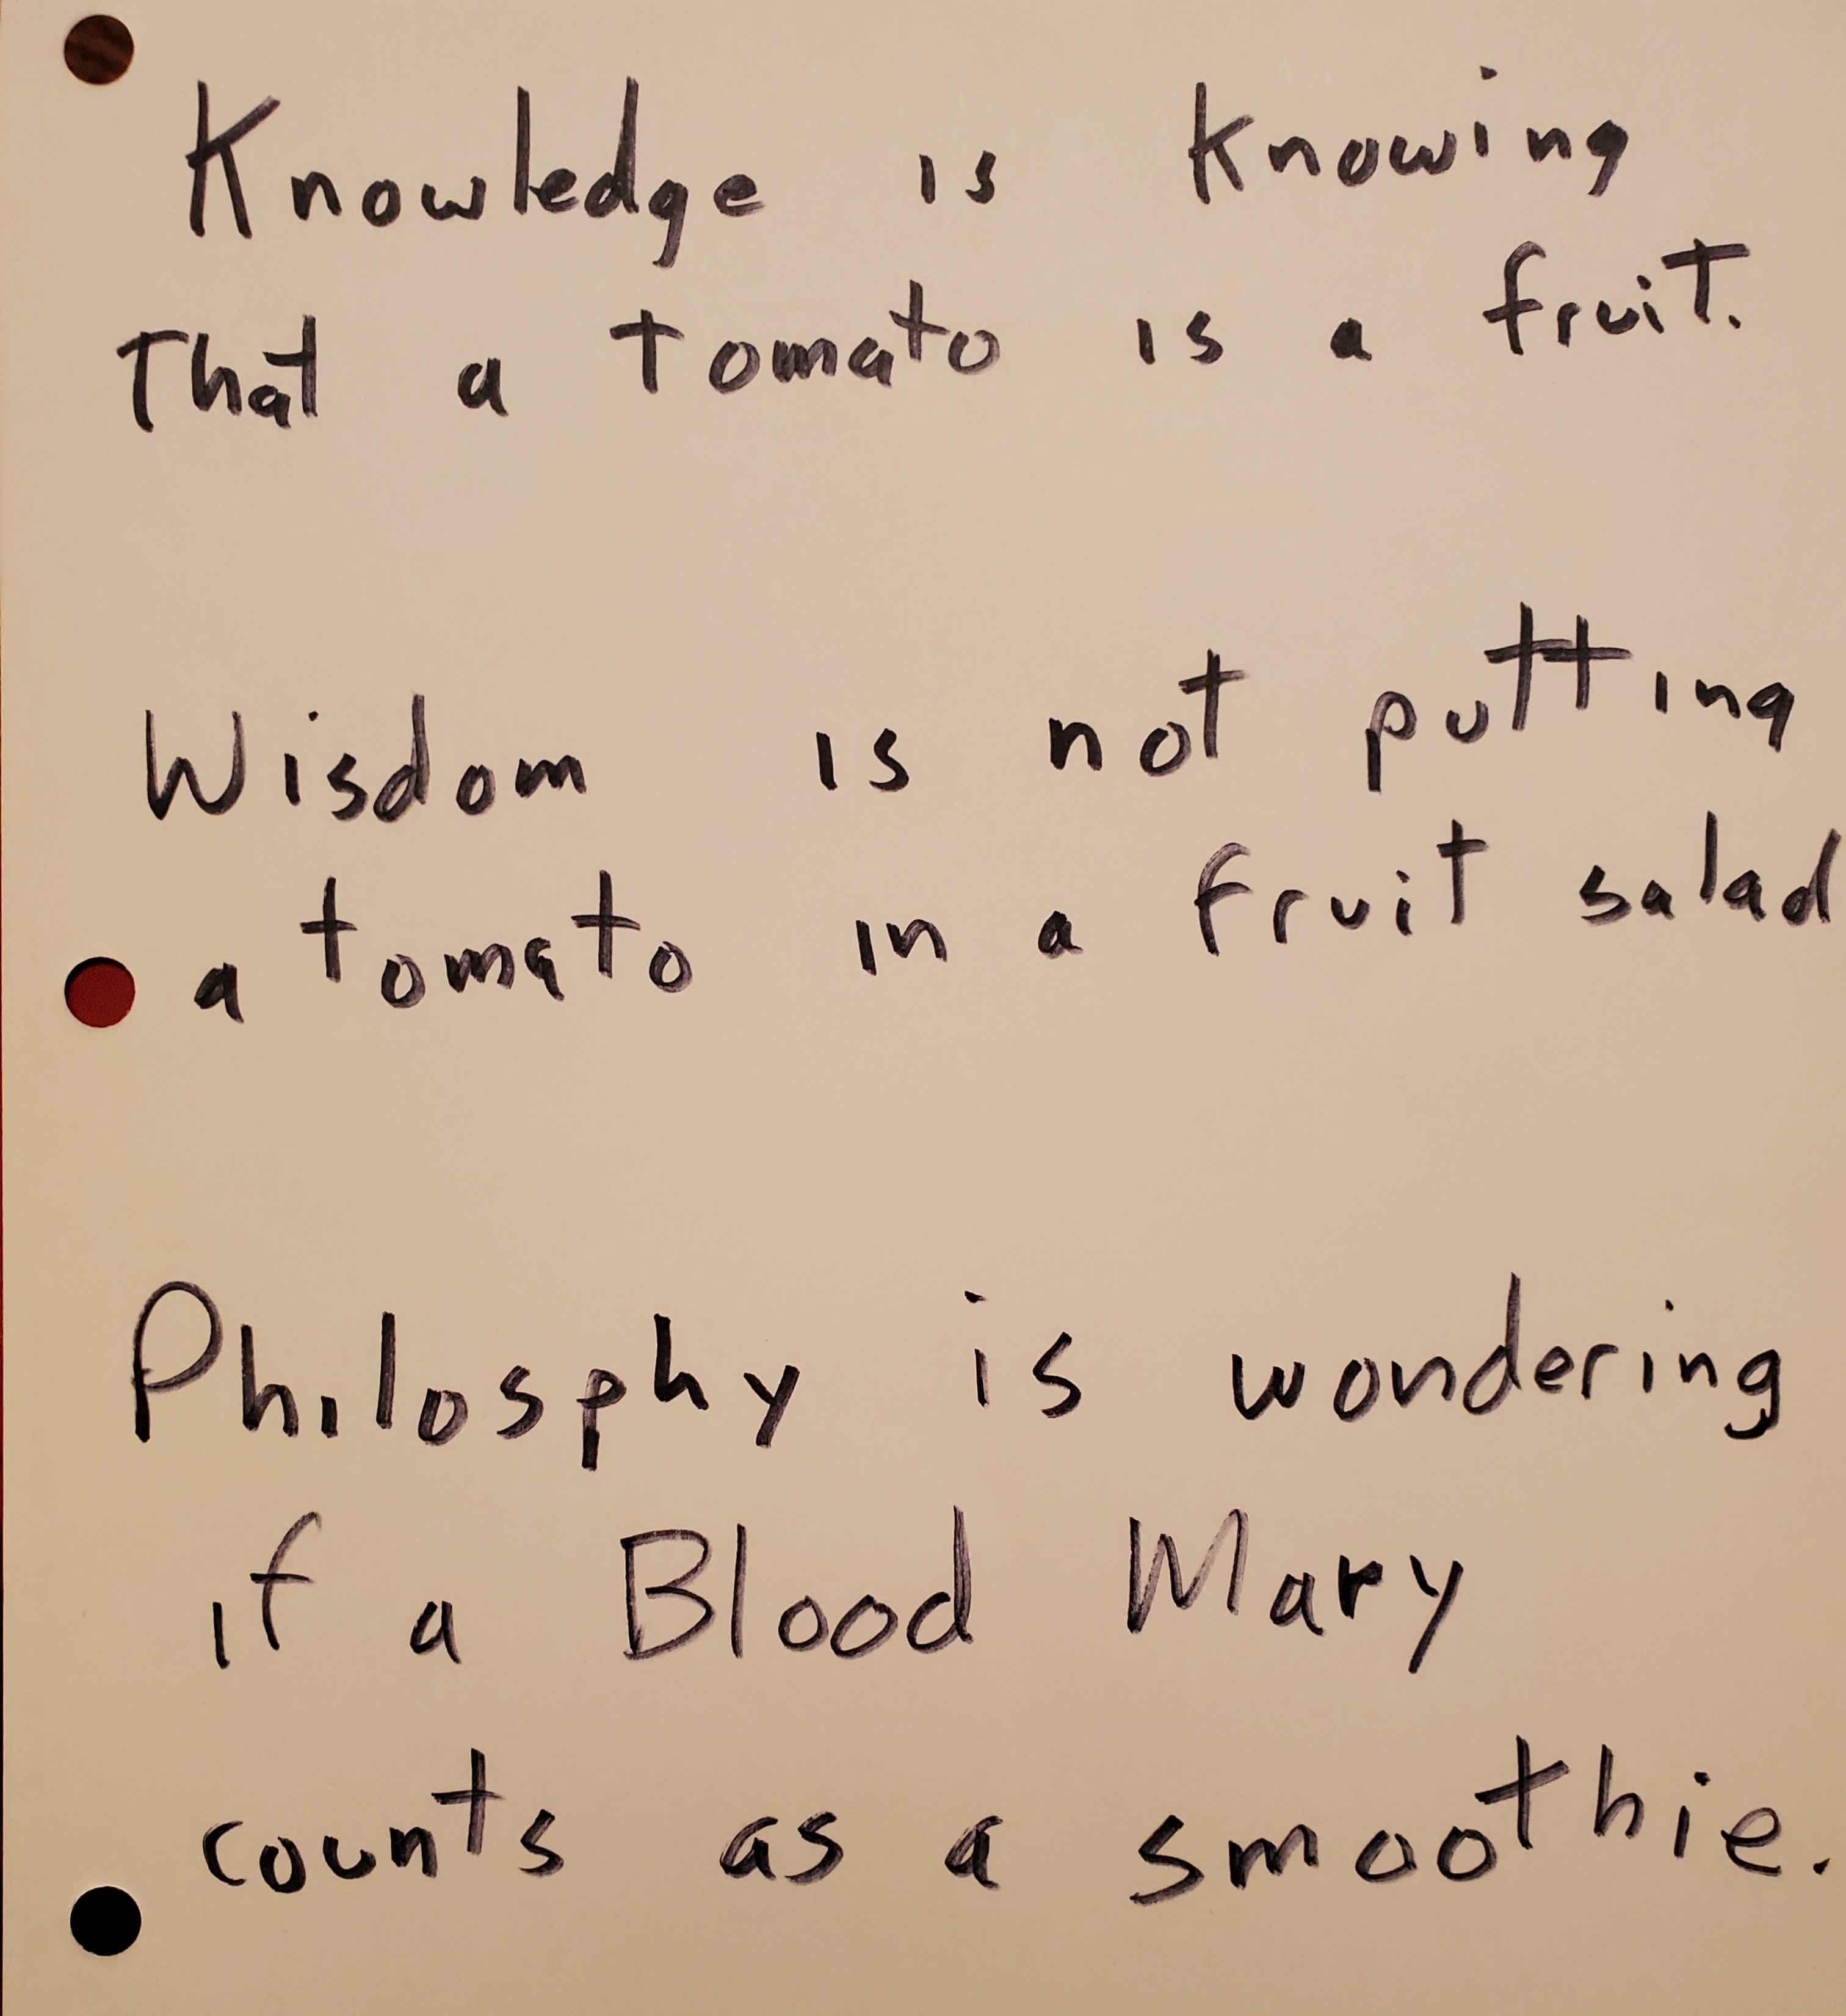 Knowledge is knowing
That a tomato is a fruit.
Wisdom is not putting
a tomato in a fruit salad
Philosphy is wondering
if a Blood Mary
counts as a smoothie.